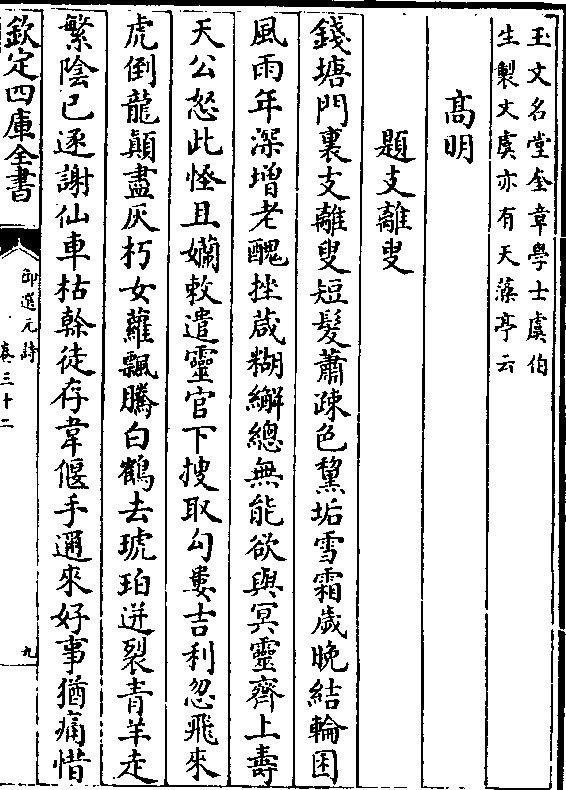 玉文名堂奎章學士虞伯
生製文虞亦有天藻亭云
高明
題支離叟
錢塘門裏支離叟短髮蕭疎色黧垢雪霜歲晚結輪囷
風雨年深増老醜挫葴糊繲總無能欲與冥靈齊上壽
天公怒此怪且孏敕遣靈官下搜取勾婁吉利忽飛來
虎倒龍顚盡灰朽女蘿飄騰白鶴去琥珀迸裂青羊走
繁陰已逐謝仙車枯榦徒存韋偃手邇來好事猶痛惜
欽定四庫全書
御選元詩
卷三十二
九